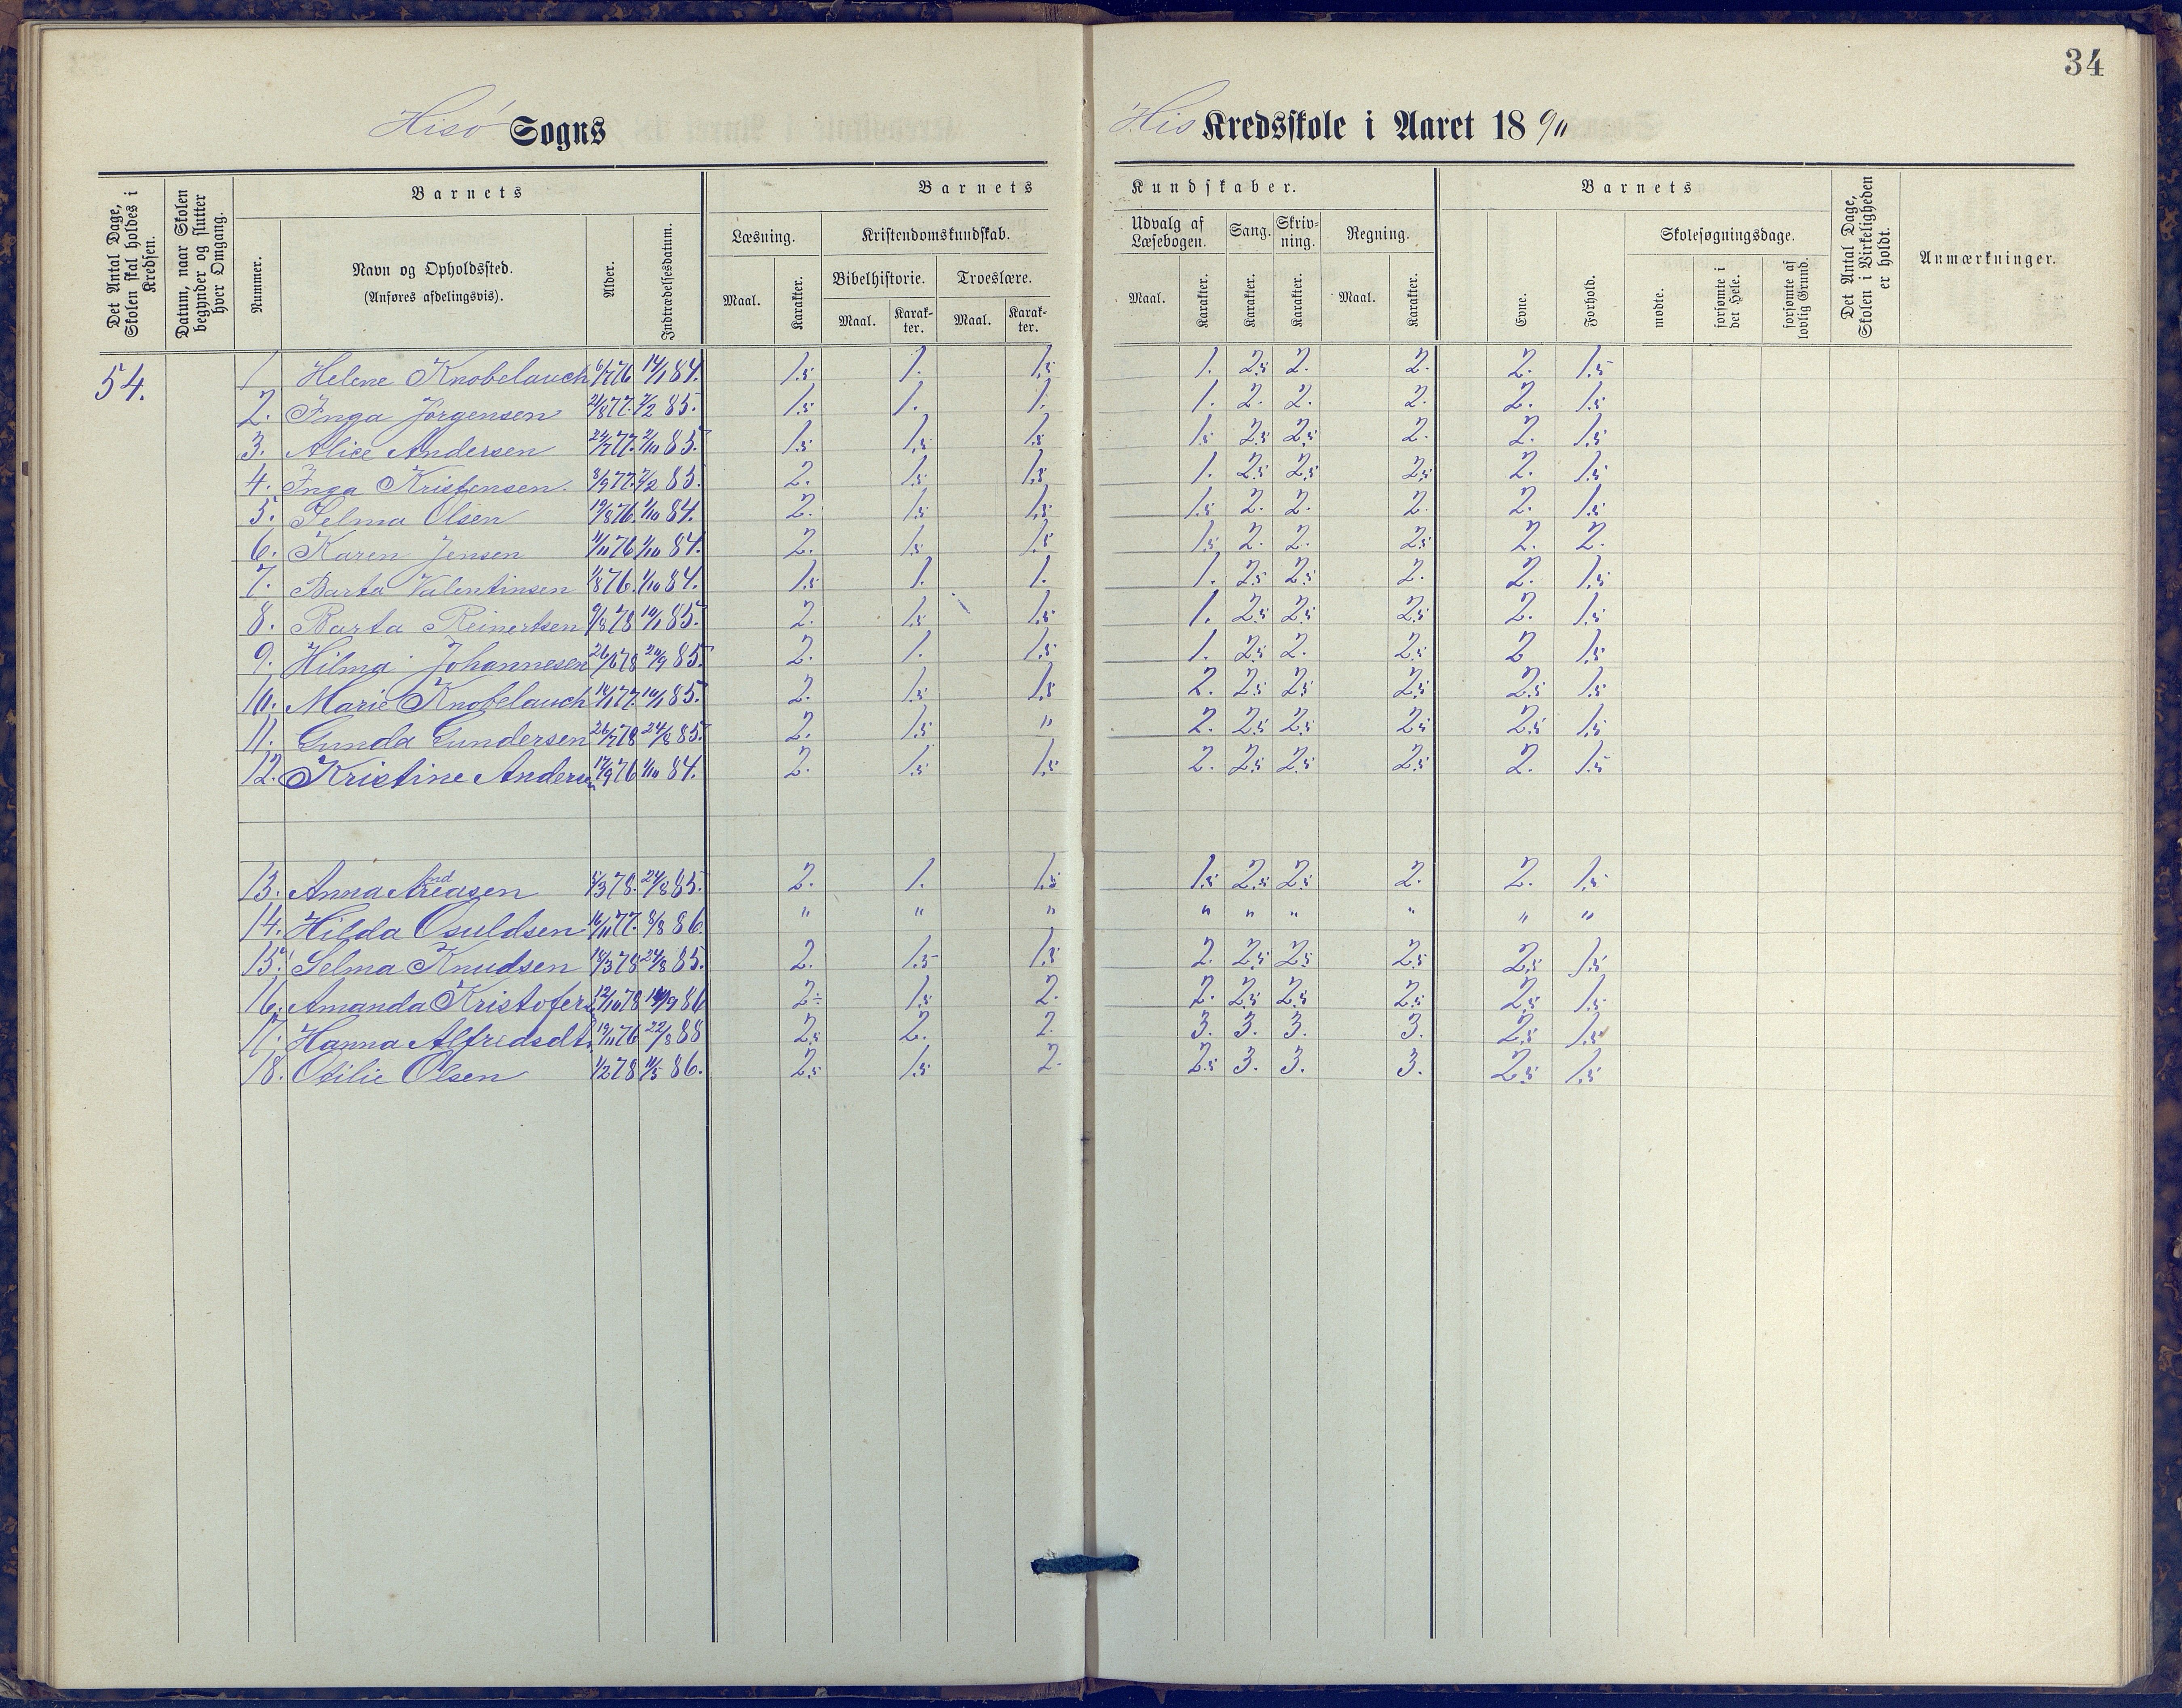 34
Hisö Sogns
His Kredsskole i Aaret 1890
Det Antal Dage, Skolen skal holdes i Kredsen.
Datum, naar Skolen begynder og slutter hver Omgang.
Barnets
Nummer.
Navn og Opholdssted.
(Anføres afdelingsvis).
Alder.
Indtrædelsesdatum.
Barnets
Kundskaber.
Læsning.
Maal. Karakter.
Kristendomskundskab.
Bibelhistorie. Troeslære.
Maal. Karakter. Maal. Karakter.
Udvalg af Læsebogen.
Maal. Karakter.
Sang.
Karakter.
Skrivning.
Karakter.
Regning.
Maal. Karakter.
Barnets
Evne.
Forhold.
Skolesøgningsdage.
mødte.
forsømte i det Hele.
forsømte af lovlig Grund.
Det Antal Dage, Skolen i Virkeligheden er holdt.
Anmærkninger.
54.
1 Helene Knobelauch 6/7 76 14/1 84. 1.5 1. 1.5 1. 2.5 2. 2. 2. 1.5
2. Inga Jørgensen 21/8 77. 2/2 85. 1.5 1. 1. 1. 2. 2. 2. 2. 1.5
3. Alice Andersen 24/7 77. 2/10 85. 1.5 1.5 1.5 1.5 2.5 2.5 2. 2. 1.5
4. Inga Kristensen. 3/9 77. 2/2 85. 2. 1.5 1.5 1. 2.5 2.5 2.5 2. 1.5
5. Selma Olsen 19/8 76. 1/10 84. 2. 1.5 1.5 1.5 2. 2. 2. 2. 1.5
6. Karen Jensen 11/11 76 1/10 84. 2. 1.5 1.5 1.5 2. 2. 2.5 2. 2.
7. Barta Valentinsen 1/8 76. 1/10 84. 1.5 1. 1. 1. 2.5 2.5 2. 2. 1.5
8. Barta Reinertsen 9/8 78 14/1 85. 2. 1.5 1.5 1. 2.5 2.5 2.5 2. 1.5
9. Hilma Johannesen 26/6 78 24/9 85. 2. 1. 1.5 1. 2.5 2. 2.5 2 1.5
10. Marie Knobelauch 14/1 77. 14/1 85. 2. 1.5 1.5 2. 2.5 2.5 2.5 2.5 1.5
11. Gunda Gundersen 26/7 78 24/8 85. 2. 1.5 " 2. 2.5 2.5 2.5 2.5 1.5
12. Kristine Andersen 17/9 76 1/10 84. 2. 1.5 1.5 2. 2.5 2.5 2.5 2. 1.5
13. Anna Andreasen 5/3 78. 24/8 85. 2. 1. 1.5 1.5 2.5 2.5 2. 2. 1.5
14. Hilda Osuldsen 16/11 77. 8/8 86. " " " " " " " " "
15. Selma Knudsen 18/3 78 24/8 85. 2. 1.5 1.5 2. 2.5 2.5 2.5 2.5 1.5
16. Amanda Kristofers 12/10 78 86 2÷ 1.5 2. 2. 2.5 2.5 2.5 2.5 1.5
17. Hanna Alfredsdt. 19/11 76 22/8 88 2.5 2. 2. 3. 3. 3. 3. 2.5 1.5
18. Otilie Olsen 1/2 78 11/5 86. 2.5 1.5 2. 2.5 3. 3. 3. 2.5 1.5